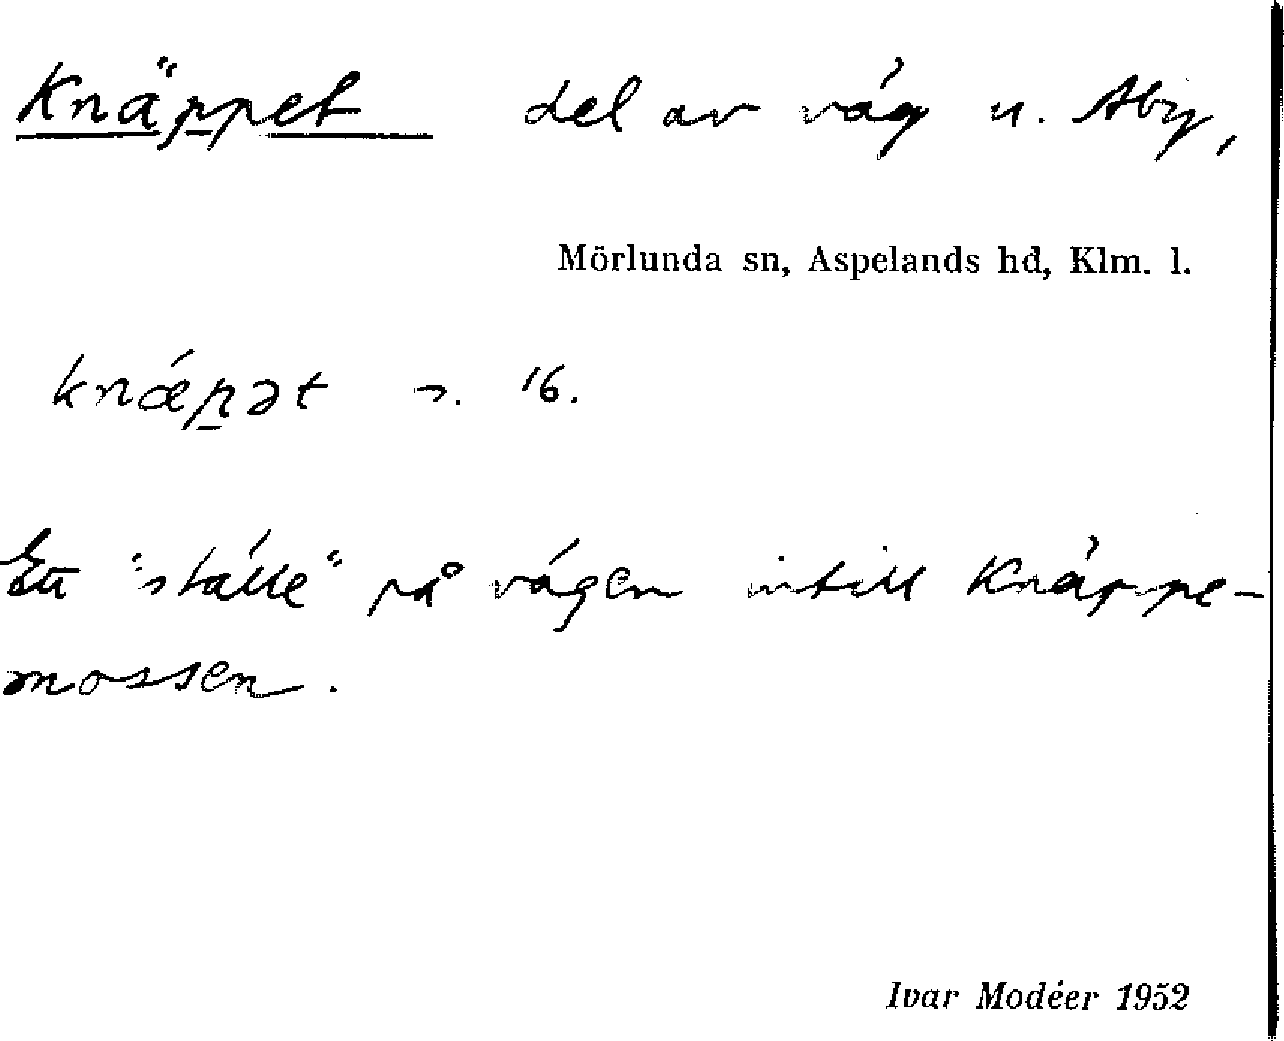 Knäppet del av väg u. Åby,
Mörlunda sn, Aspelands hd, Klm. l.
knǽp̱ət n. 16.
Ett "ställe" på vägen intill Knäppe-
mossen.
Ivar Modéer 1952